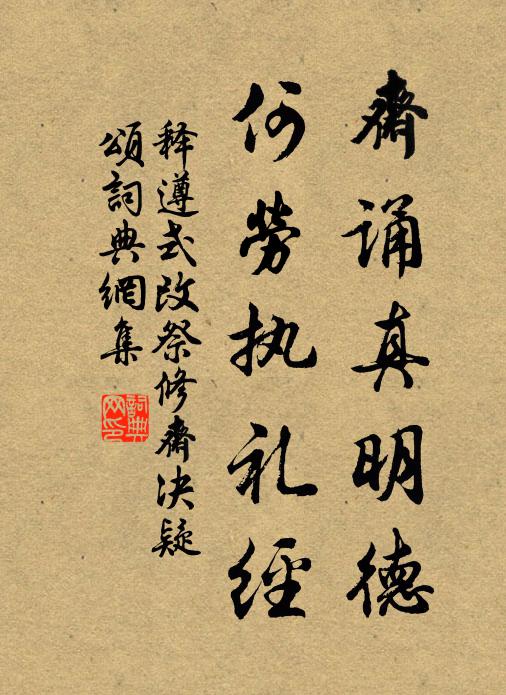 齋诵真明德
何劳执礼經
释遵式改祭修齋决疑
頌詞典網集
詞典
网印